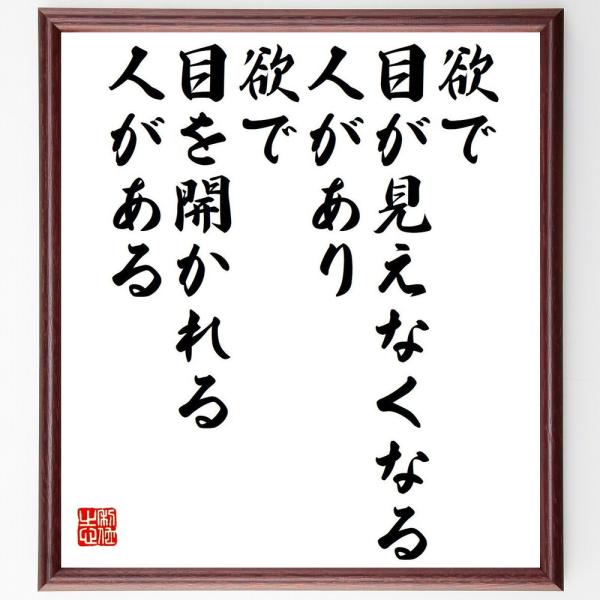 欲で
目が見えなくなる
人があり
欲で
目を開かれる
人がある